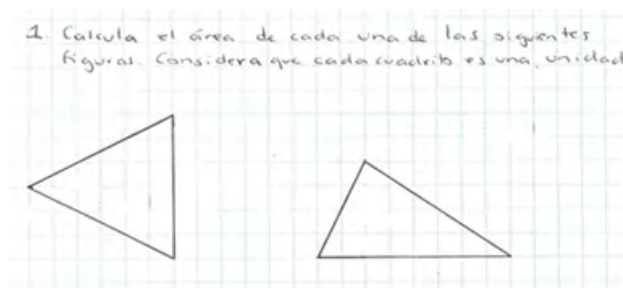 1. Calcula el área de cada una de las siguientes
figuras. Considera que cada cuadrito es una unidad